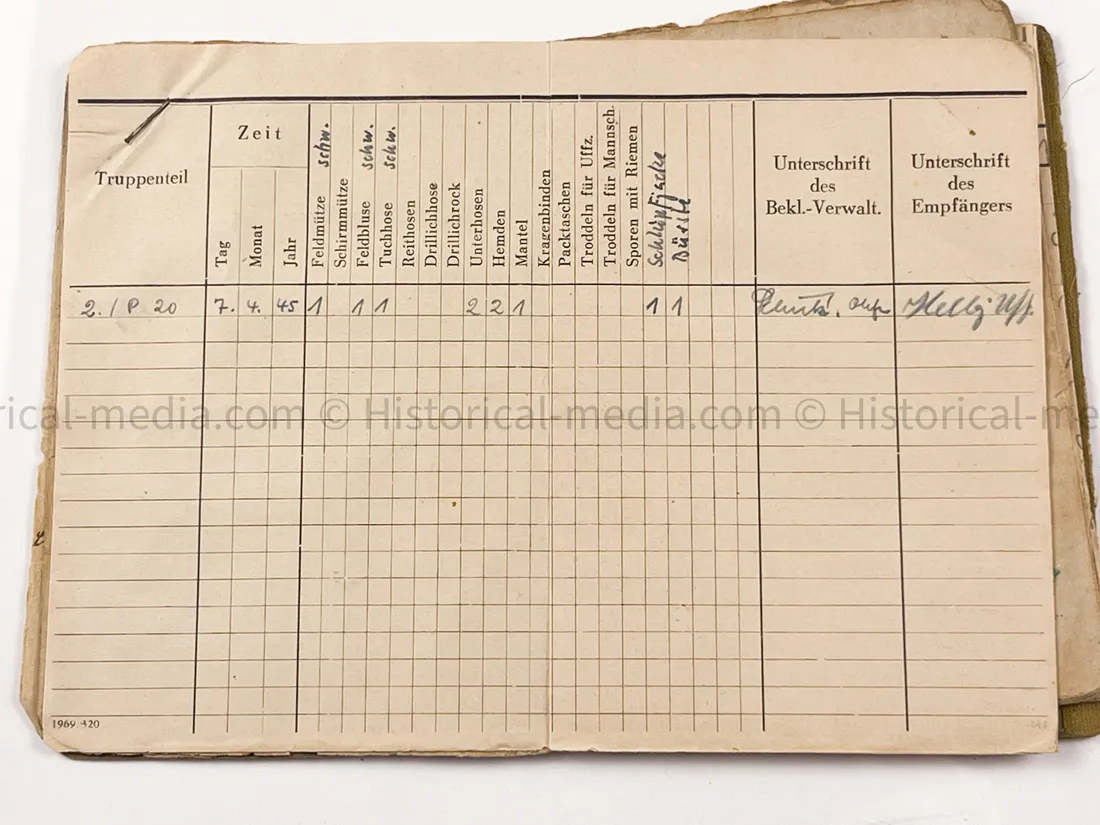 Truppenteil
Zeit
Tag
Monat
Jahr
Feldmütze schw.
Schirmmütze
Feldbluse schw.
Tuchhose schw.
Reithosen
Drillichhose
Drillichrock
Unterhosen
Hemden
Mantel
Kragenbinden
Packtaschen
Troddeln für Uffz.
Troddeln für Mannsch.
Sporen mit Riemen
Schlüpfjacke
Unterschrift
des
Bekl.-Verwalt.
Unterschrift
des
Empfängers
2. / P 20 7. 4. 45 1 1 1 2 2 1 1 1 Uffz.
Historical-media.com © Historical-media.com © Historical-me
1969 420